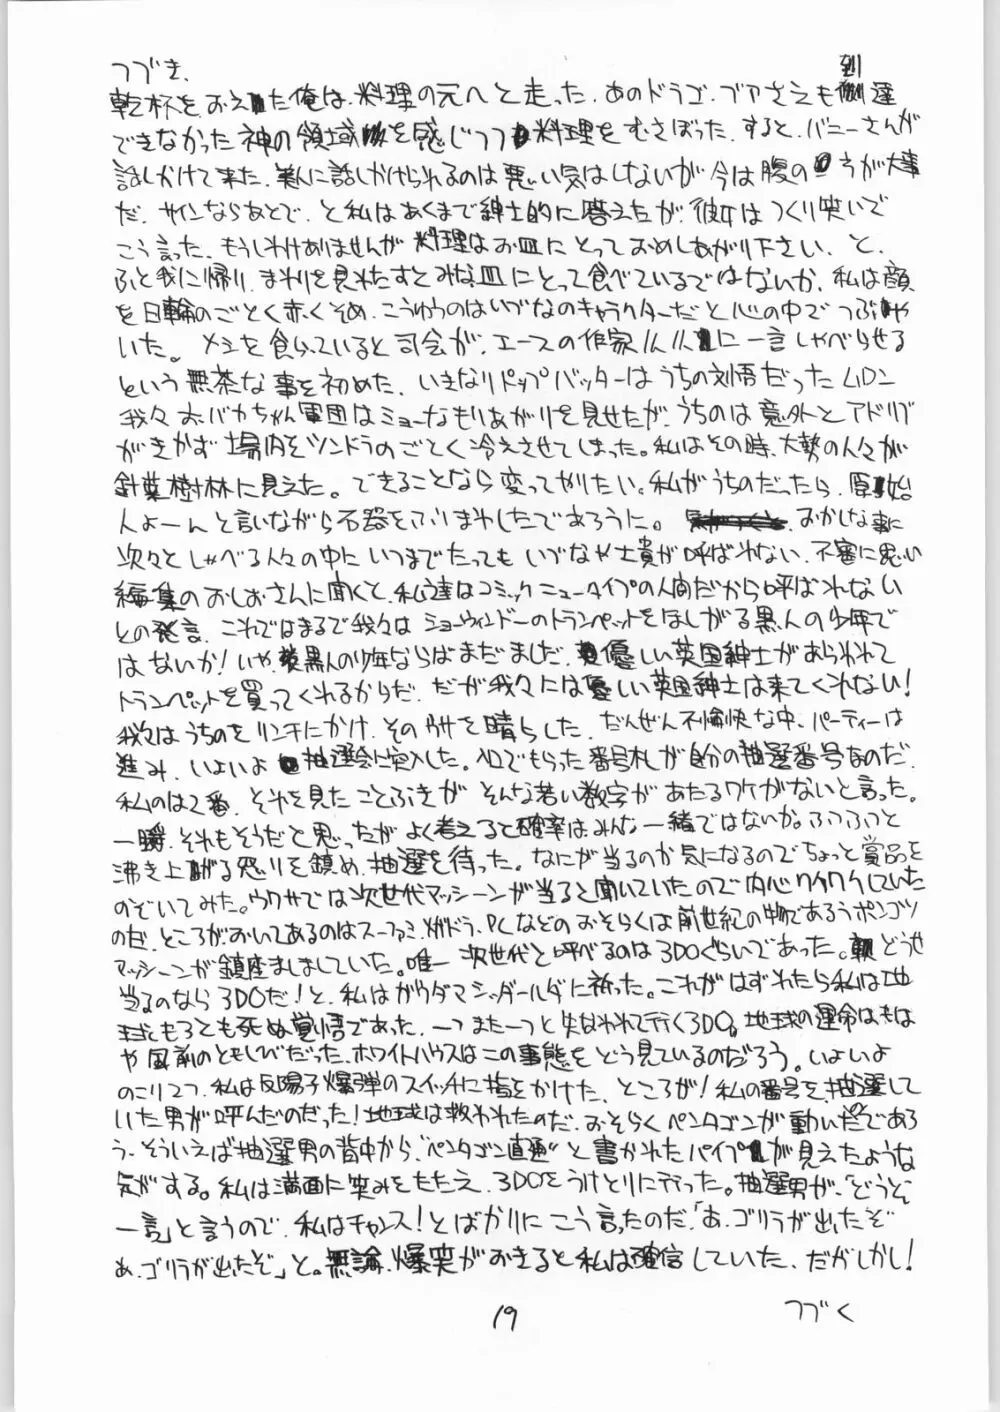 つづき.
乾杯をおえた俺は、料理の元へと走った。あのドラゴ・ブアさえも到達
できなかった神の領域を感じつつ料理をむさぼった。すると、バニーさんが
話しかけて来た。美人に話しかけられるのは悪い気はしないが今は腹のほうが大事
だ。サインならあとで、と私はあくまで紳士的に答えたが、彼女はつくり笑いで
こう言った。もうしわけありませんが料理はお皿にとっておめしあがり下さい、と。
ふと我に帰り、まわりを見わたすとみな皿にとって食べているではないか。私は顔
を日輪のごとく赤くそめ、こうゆうのはいづなのキャラクターだと心の中でつぶや
いた。メシを食らっていると司会が、エースの作家 に一言しゃべらせる
という無茶な事を初めた。いきなりトップバッターはうちの刘悟だった
我々おバカちゃん軍団はミョーなもりあがりを見せたが、うちのは意外とアドリブ
がきかず場内をツンドラのごとく冷えさせてしまった。私はその時、大勢の人々が
針葉樹林に見えた。できることなら変ってやりたい。私がうちのだったら、原始
人よーんと言いながら石器をふりまわしたであろうに。 おかしな事に
次々としゃべる人々の中にいつまでたってもいづなや士貴が呼ばれない、不審に思い
編集のおしおさんに聞くと、私達はコミックニュータイプの人間だから呼ばれない
との発言、これではまるで我々はショーウィンドーのトランペットをほしがる黒人の少年で
はないか!いや、黒人の少年ならばまだましだ、優しい英国紳士があらわれて
トランペットを買ってくれるからだ、だが我々には優しい英国紳士は来てくれない!
我々はうちのをリンチにかけ、そのウサを晴らした。だんぜん不愉快な中、パーティーは
進み、いよいよ抽選会に突入した。入口でもらった番号札が自分の抽選番号なのだ。
私のは2番、それを見たことぶきがそんな若い数字があたるワケがないと言った。
一瞬、それもそうだと思ったがよく考えると確率はみんな一緒ではないか。ふつふつと
沸き上がる怒りを鎮め、抽選を待った。なにが当るのか気になるのでちょっと賞品を
のぞいてみた。ウワサでは次世代マッシーンが当ると聞いていたので内心ワクワクしていた
のだ、ところがおいてあるのはスーファミ、メガドラ、PCなどのおそらくは前世紀の物であろうポンコツ
マッシーンが鎮座ましましていた。唯一次世代と呼べるのは3DOぐらいであった。どうせ
当るのなら3DOだ!と、私はガウダマ・シッダールダに祈った。これがはずれたら私は地
球もろとも死ぬ覚悟であった、一つまた一つと失なわれて行く3DO。地球の運命はもは
や風前のともしびだった、ホワイトハウスはこの事態をどう見ているのだろう。いよいよ
のこり2つ、私は反陽子爆弾のスイッチに指をかけた、ところが!私の番号を、抽選して
いた男が呼んだのだった!地球は救われたのだ、おそらくペンタゴンが動いたのであろ
う。そういえば抽選男の背中から、"ペンタゴン直通"と書かれたパイプが見えたような
気がする。私は満面に笑みをたたえ、3DOをうけとりに行った。抽選男が、「どうぞ
一言」と言うので、私はチャンス!とばかりにこう言ったのだ、「あ、ゴリラが出たぞ
あ、ゴリラが出たぞ」と。無論、爆笑がおきると私は確信していた、だがしかし!
つづく
19